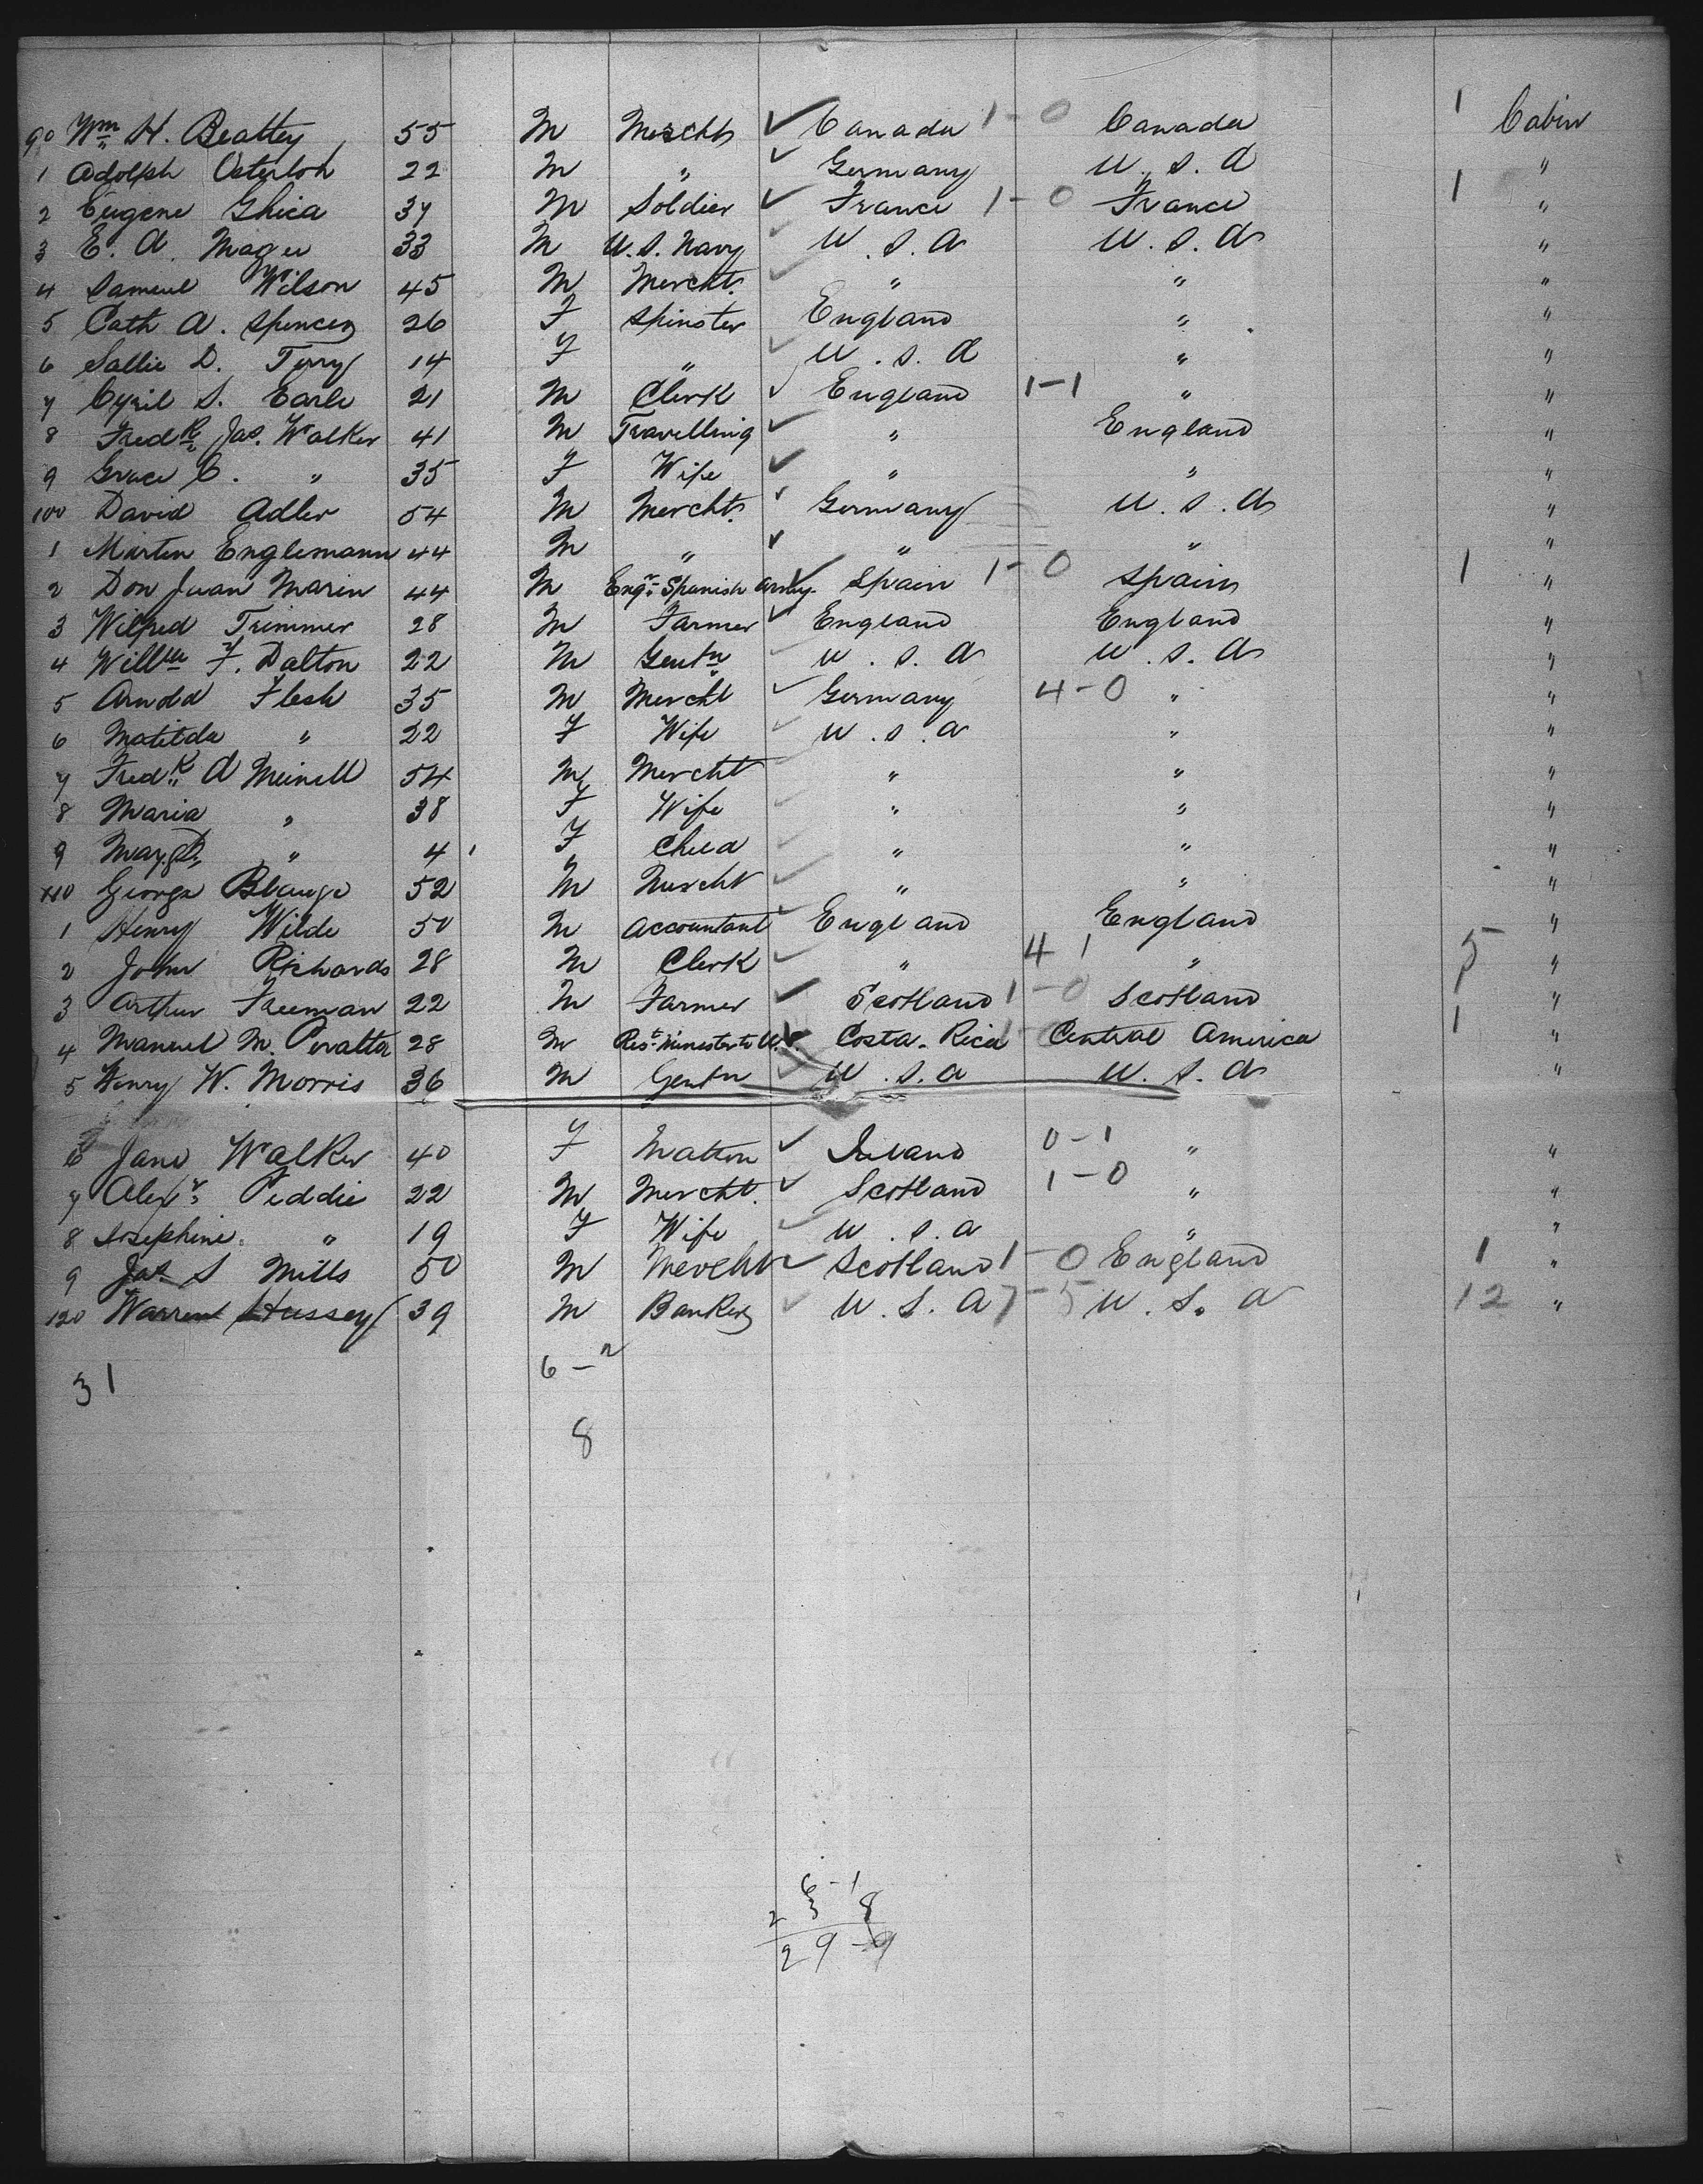 90 Wm H. Beattey 55 M Mercht ✓ Canada 1-0 Canada 1 Cabin
1 Adolph Osterloh 22 M " ✓ Germany U.S.A "
2 Eugene Ghica 37 M Soldier ✓ France 1-0 France 1 "
3 E. A. Magee 33 M U.S. Navy ✓ U.S.A U.S.A "
4 Samuel Wilson 45 M Mercht. ✓ " " "
5 Cath A. Spencer 26 F Spinster England " "
6 Sallie D. Terry 14 F " ✓ U.S.A " "
7 Cyril S. Earle 21 M Clerk ✓ England 1-1 " "
8 Fredk Jas. Walker 41 M Travelling ✓ " England "
9 Grace C. " 35 F Wife ✓ " " "
100 David Adler 54 M Mercht. ✓ Germany U.S.A "
1 Martin Englemann 44 M " ✓ " " "
2 Don Juan Marin 44 M Engr. Spanish Army ✓ Spain 1-0 Spain 1 "
3 Wilfred Trimmer 28 M Farmer ✓ England England "
4 Willm F. Dalton 22 M Gentn ✓ U.S.A U.S.A "
5 Arnold Flesh 35 M Mercht ✓ Germany 4-0 " "
6 Matilda " 22 F Wife ✓ U.S.A " "
7 Fredk A Meinell 54 M Mercht ✓ " " "
8 Maria " 38 F Wife ✓ " " "
9 May " 4 F Child ✓ " " "
110 George Blauge 52 M Mercht ✓ " " "
1 Henry Wilde 50 M Accountant ✓ England England "
2 John Richards 28 M Clerk ✓ " 4 1 " 5 "
3 Arthur Freeman 22 M Farmer ✓ Scotland 1-0 Scotland 1 "
4 Manuel M. Peralta 28 M Rest. Minester to U.S. ✓ Costa-Rica 1-0 Central America 1 "
5 Henry W. Morris 36 M Gentn ✓ U.S.A U.S.A "
6 Jane Walker 40 F Matron ✓ Ireland 0-1 " "
7 Alexr. Peddie 22 M Mercht. ✓ Scotland 1-0 " "
8 Josephine " 19 F Wife ✓ U.S.A " "
9 Jas. S Mills 50 M Mercht ✓ Scotland 1-0 England 1 "
120 Warren Hussey 39 M Banker ✓ U.S.A 7-5 U.S.A 12 "
31 6-2
8
6-1
2 3 8
29-9